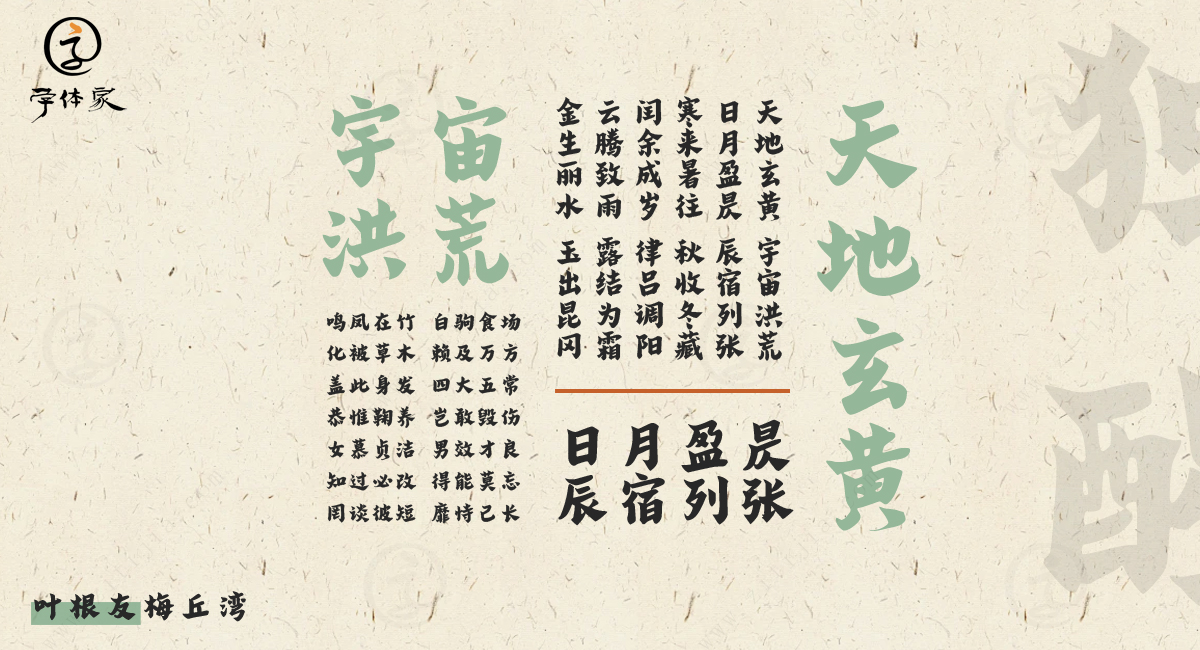 字体家
天地玄黄
天地玄黄 宇宙洪荒
日月盈昃 辰宿列张
寒来暑往 秋收冬藏
闰余成岁 律吕调阳
云腾致雨 露结为霜
金生丽水 玉出昆冈
日月盈昃
辰宿列张
宇宙
洪荒
鸣凤在竹 白驹食场
化被草木 赖及万方
盖此身发 四大五常
恭惟鞠养 岂敢毁伤
女慕贞洁 男效才良
知过必改 得能莫忘
罔谈彼短 靡恃己长
叶根友梅丘湾